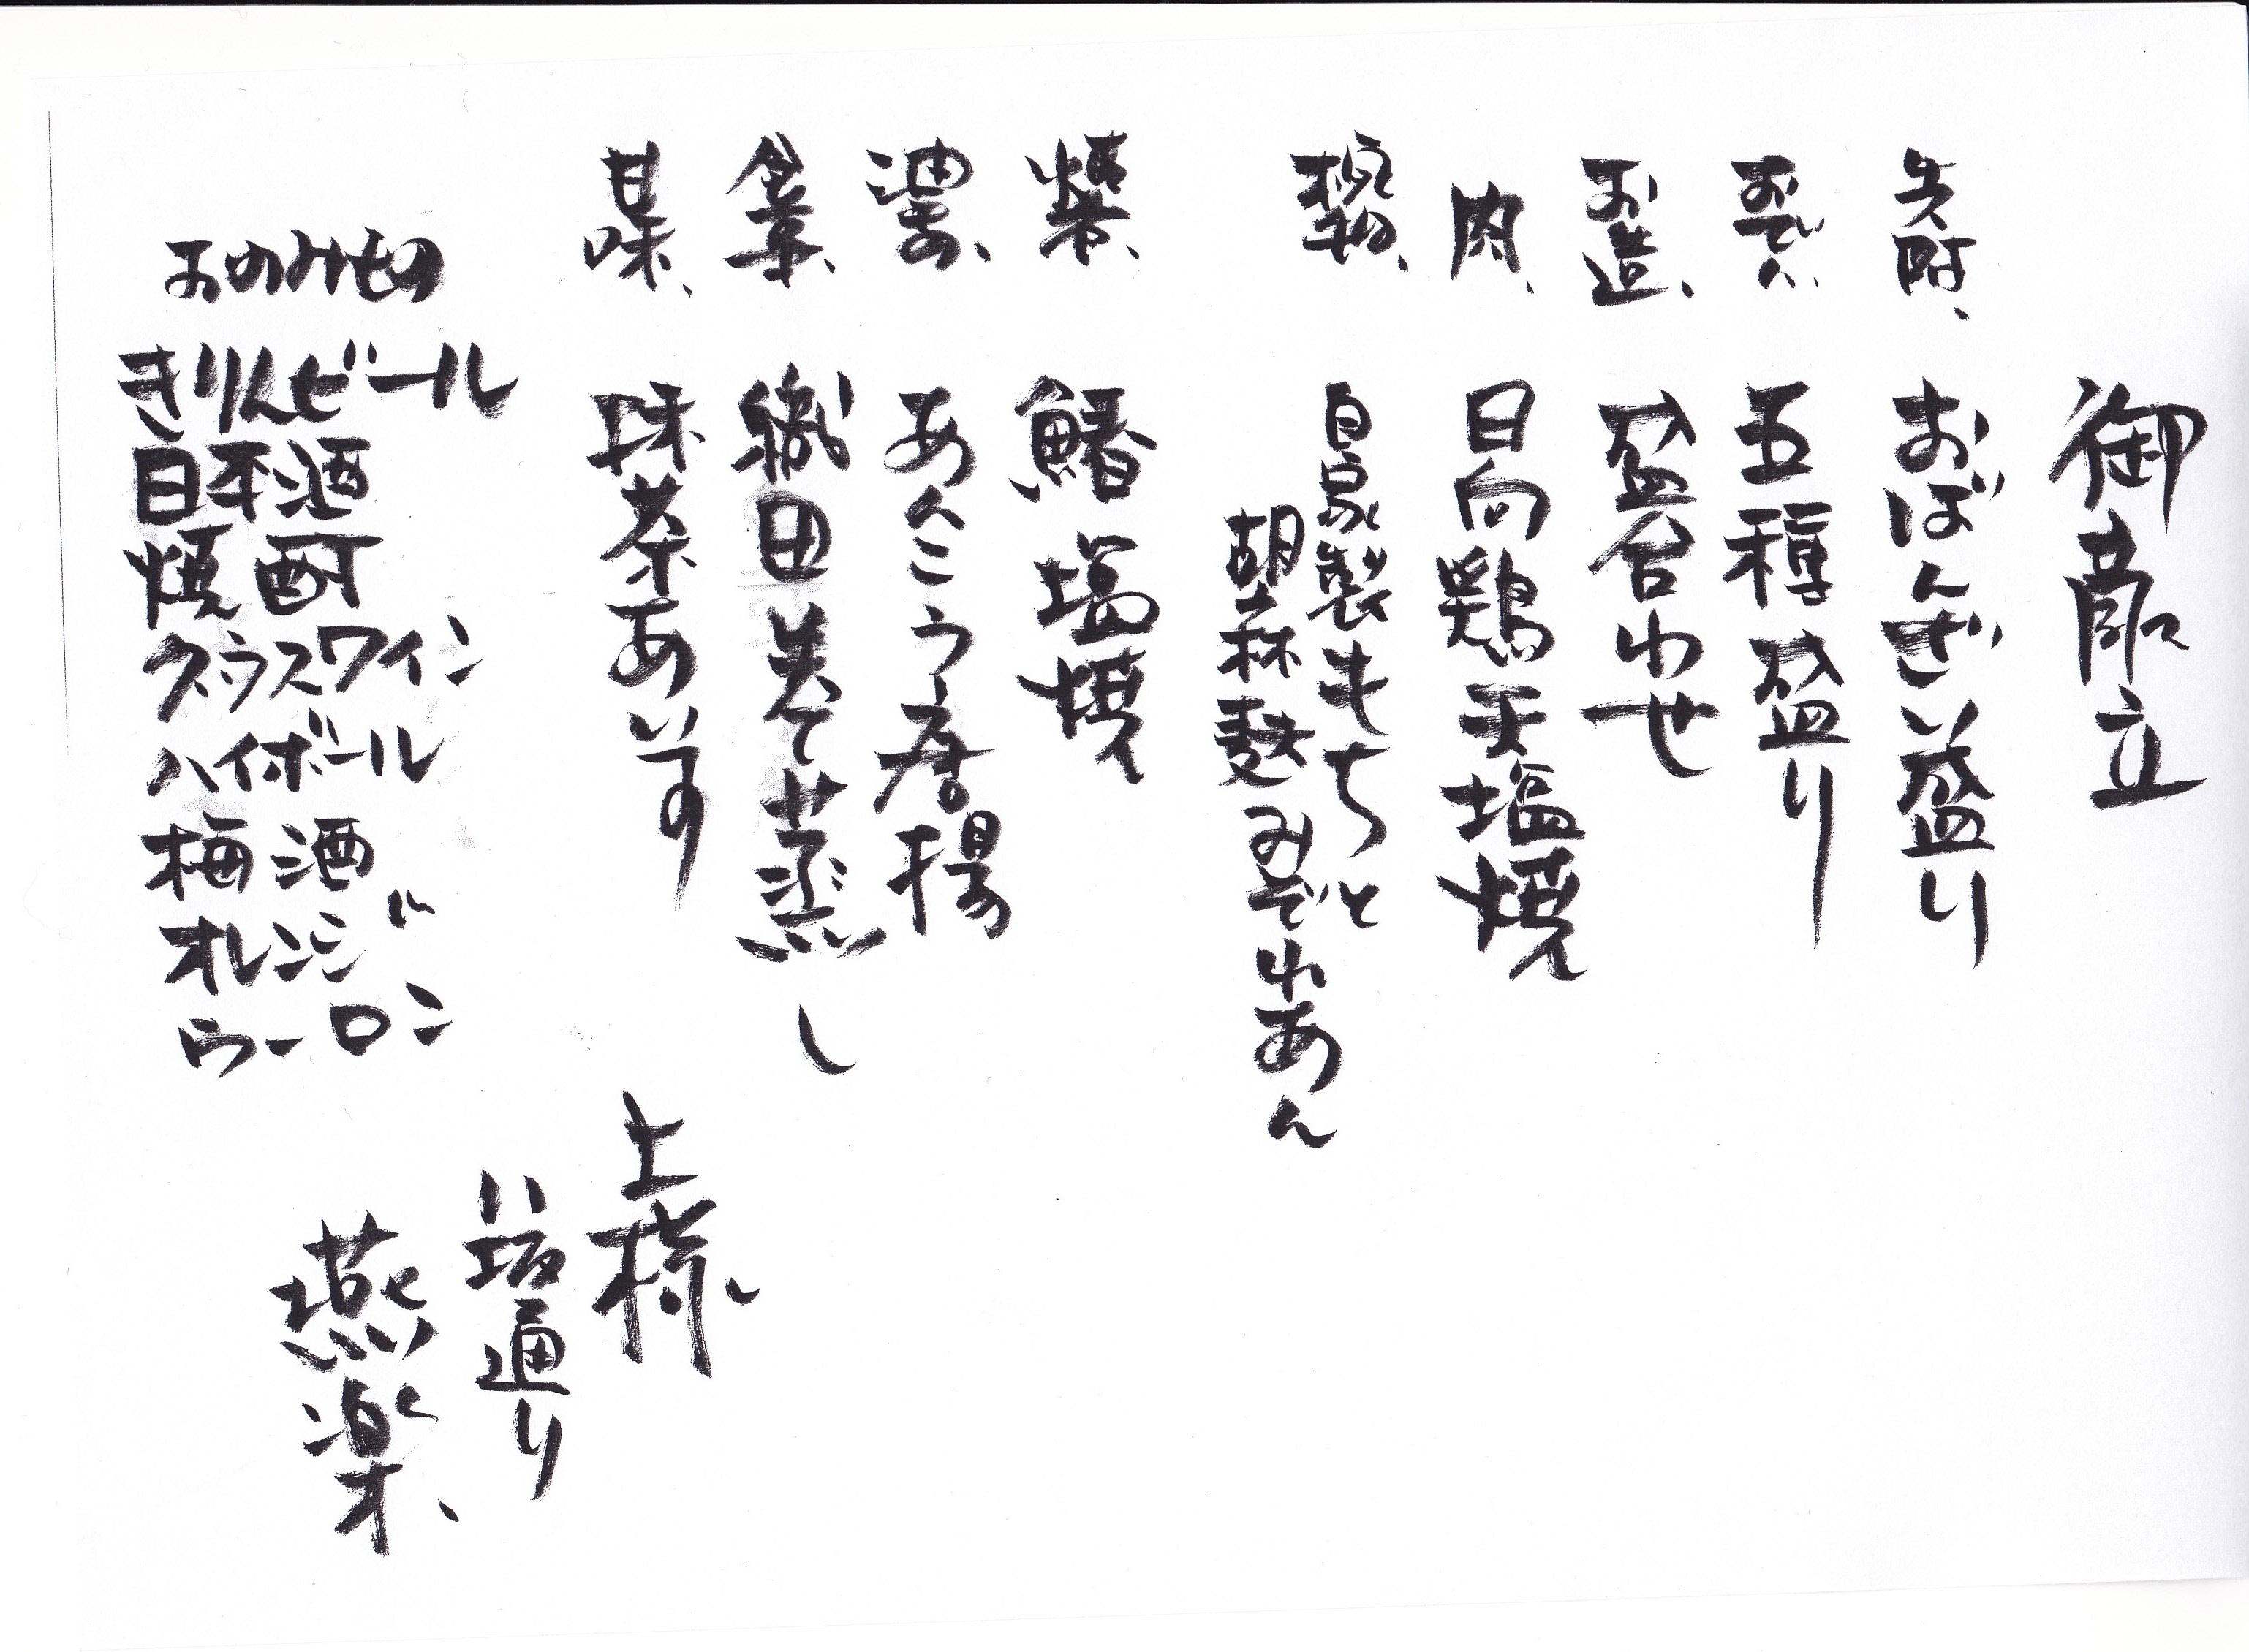 御献立
先附、おばんざい盛り
おでん、五種盛り
お造、盛合わせ
肉、日向鶏天塩焼
椀物、自家製もちと
胡麻麩みぞれあん
焼、鰆塩焼
油物、あんこう唐揚
食事、織田巻て蒸し
甘味、抹茶あいす
おのみもの
きりんビール
日本酒
焼酎
グラスワイン
ハイボール
梅酒
オレンジ
ウーロン
上様
八坂通り
燕楽、